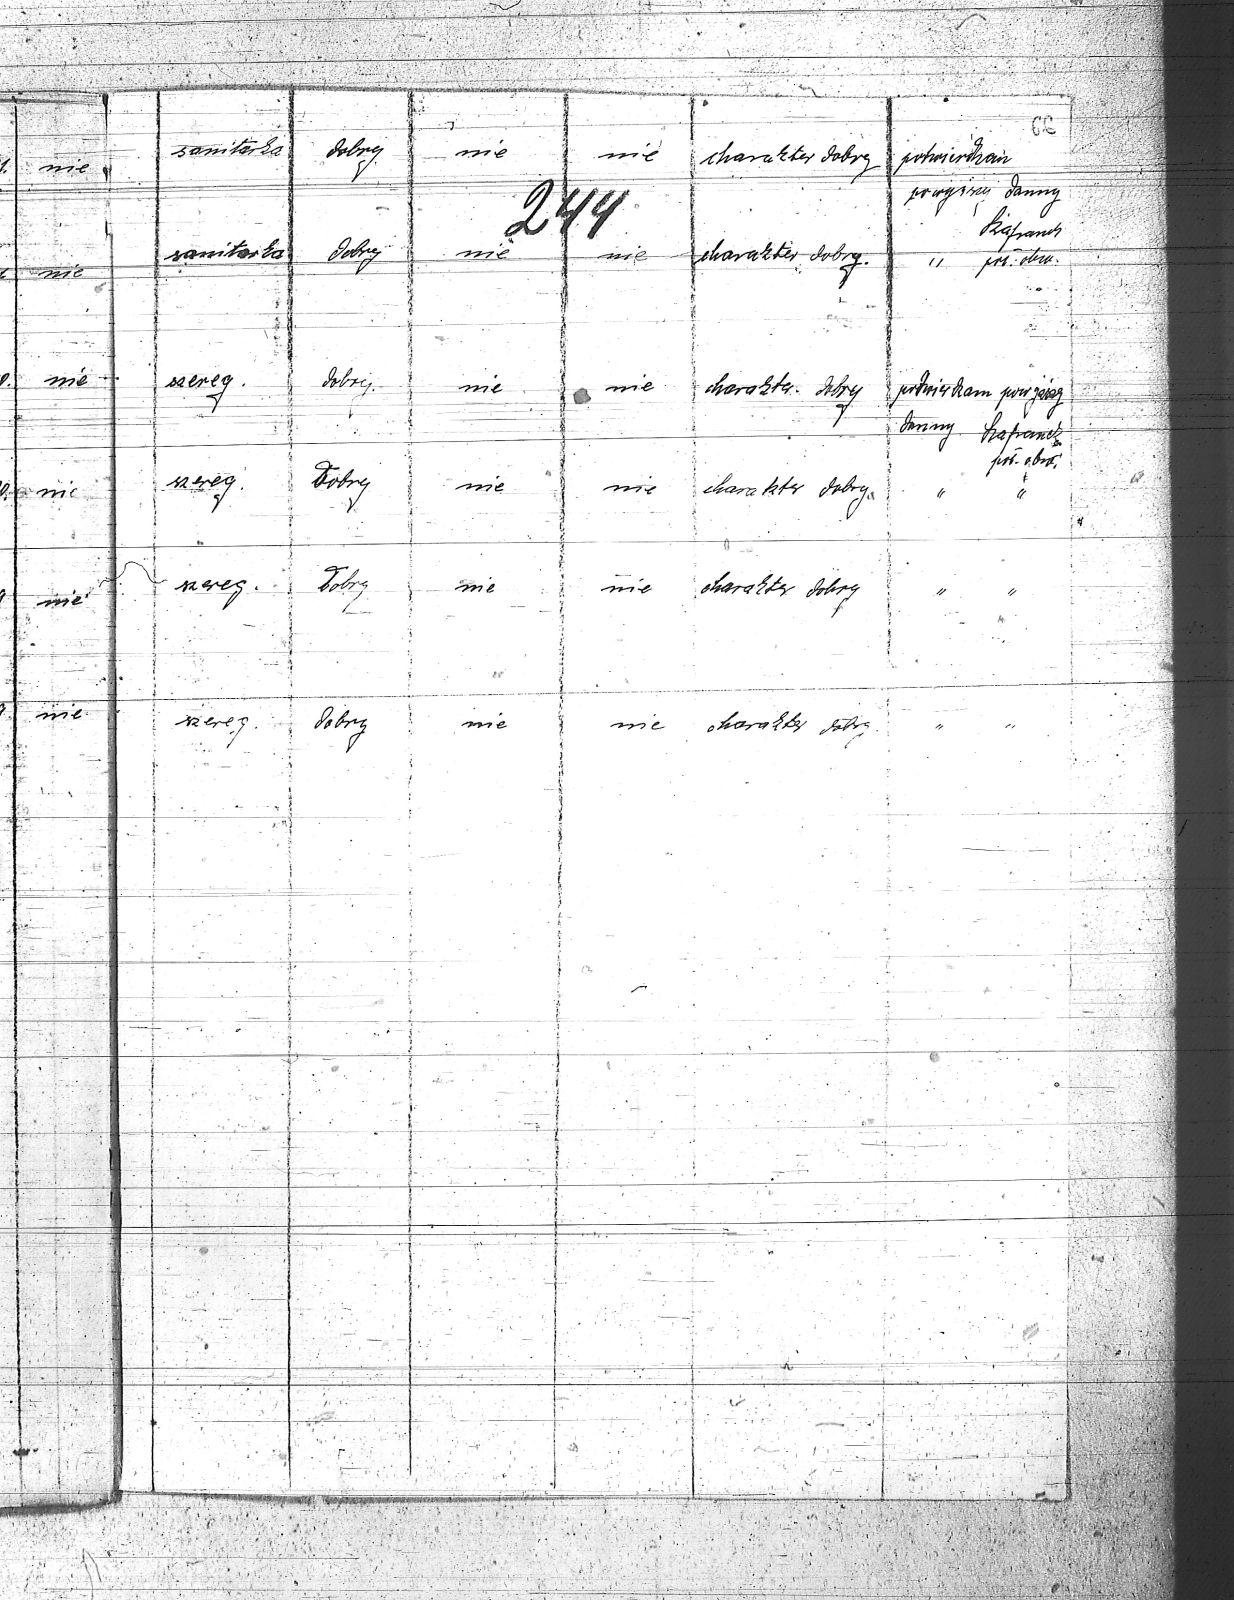 nie sanitarka dobry nie nie charakter dobry potwierdzam
powyższy danny
244
nie sanitarka dobry nie nie charakter dobry. " poś. obw.
nie szereg. dobry. nie nie charakter. dobry potwierdzam
danny
poś. obw.
nie szereg. Dobry nie nie charakter dobry. " "
nie szereg. Dobry nie nie charakter dobry " "
nie szereg. dobry nie nie charakter dobry " "